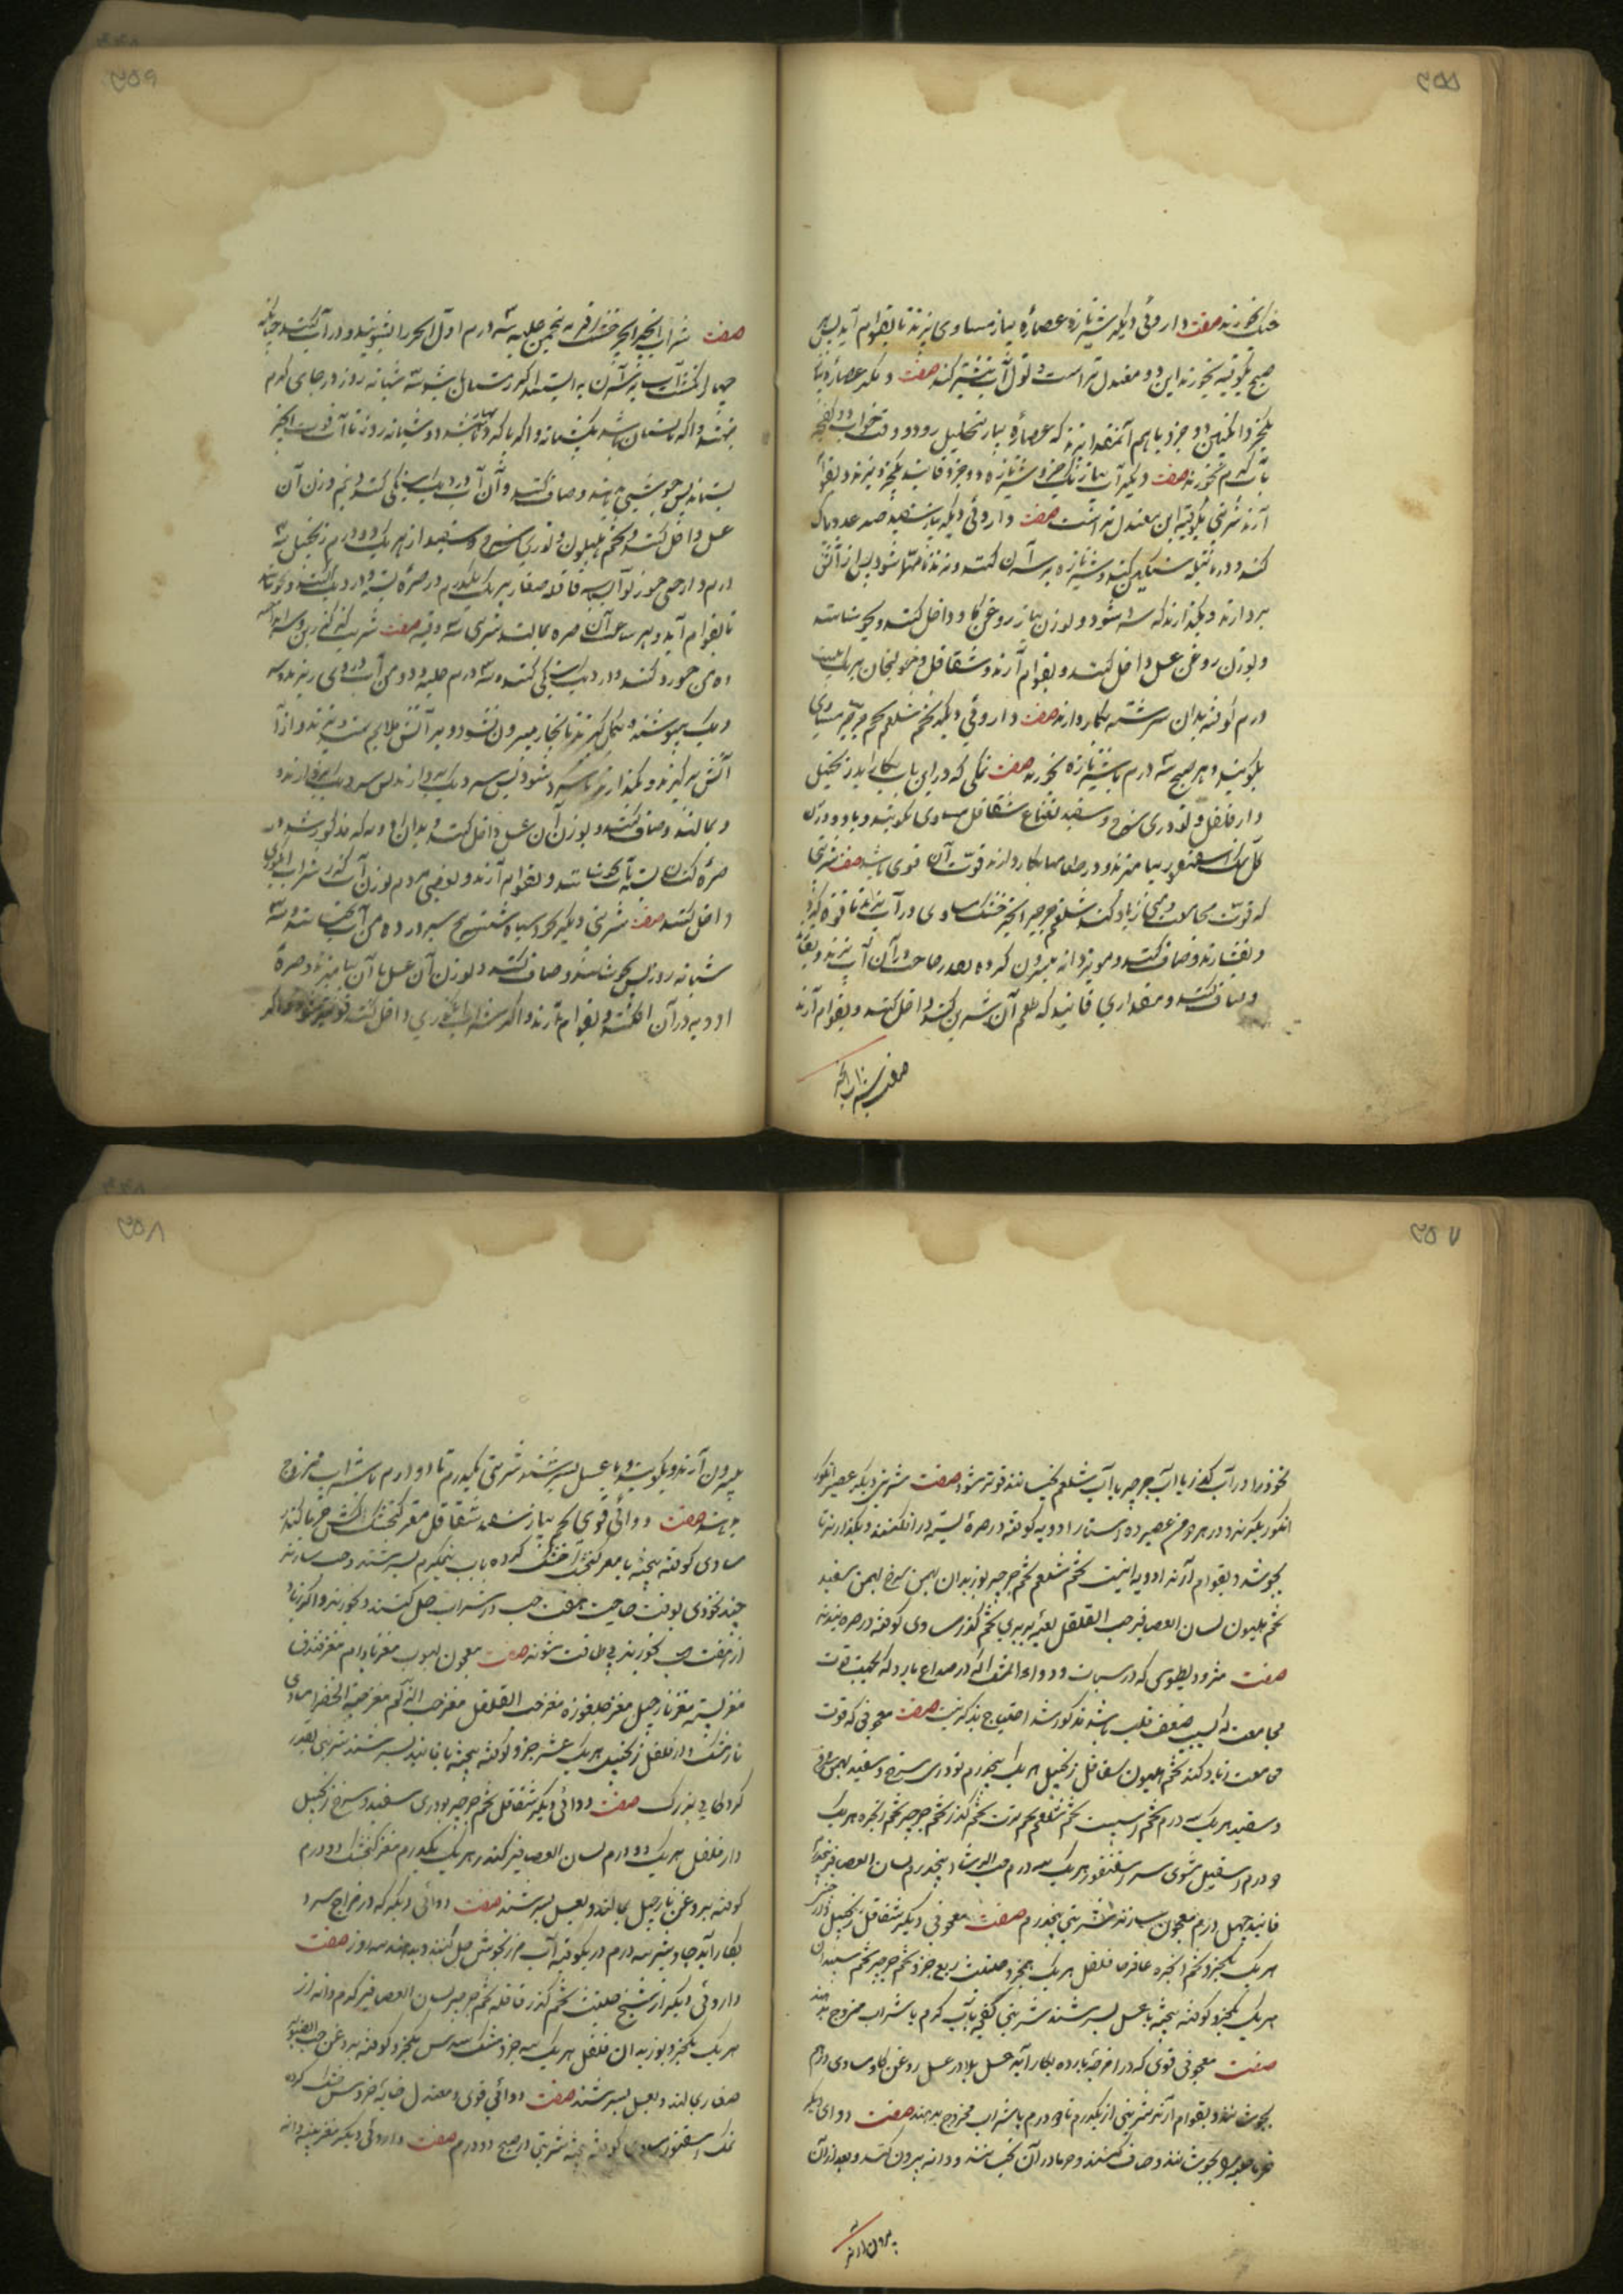 ۲۵۵
بخورند صفت داروئی دیگر شیر تازه عصارهٔ پیاز مساوی بپزند تا بقوام آید پس هر
صبح یکوقیه بخورند این دو معتدل تر است و قول آب بیشتر کند صفت دیگر عصارهٔ پیاز
یکجزو انگبین دو جزو باهم آمیخته بپزند که عصارهٔ پیاز بتحلیل رود و وقت خواب دو کفچه
بآب گرم بخورند صفت دیگر آب پیاز یک جزو شیر تازه دو جزو فانید یکجزو بپزند و بقوام
آرند شربتی یکوقیه این معتدل تر است صفت داروئی دیگر پیاز سفید صد عدد پاک
کنند و در پاتیله سنگین کنند و شیر تازه بر سر آن کنند و بپزند تا مهرا شود پس از آتش
بردارند و بگذارند که سرد شود و بوزن پیاز روغن گاو داخل کنند و بجوشانند
و بوزن روغن عسل داخل کنند و بقوام آرند و شقاقل و خولنجان هر یک بیست
درم کوفته بدان سرشته بکار دارند صفت داروئی دیگر تخم شلغم تخم جرجیر مساوی
بکوبند و هر صبح سه درم با شیر تازه بخورند صفت نمکی که در این باب بکار آید زنجبیل
دارفلفل و تودری سرخ و سفید نعناع شقاقل مساوی بکوبند و با دو وزن
کل نمک اسقنقور بیامیزند و در طعامها بکار دارند قوت آن قوی باشد صفت شربتی
که قوت مجامعت و منی زیاد کند شلغم جرجیر انجیر خشک مساوی در آب بپزند تا قوة گیرد
و بفشارند و صاف کنند و مویز دانه بیرون کرده بقدر حاجت در آن آب بپزند و بفشارند
و صاف کنند و مقداری فانید که طعم آن شیرین کند داخل کنند و بقوام آرند
صفت شراب انجیر
۲۵۶
صفت شراب انجیر انجیر خشک فربه پنجمن حلبه سه درم اول انجیر را بشویند و در آب کنند چنانکه
چهار انگشت آب بر سر آن بایستد اگر زمستان باشد سه شبانه روز در جای گرم
بنهند و اگر تابستان باشد یکشبانه و اگر پائیز و بهار باشد دو شبانه روز تا آب قوت انجیر
بستاند پس جوشی بدهند و صاف کنند و آن آب در دیک سنگی کنند و نیم وزن آن
عسل داخل کنند و تخم هلیون و تودری سرخ و سفید از هر یک دو درم زنجبیل سه
درم دارچینی جوزبوا بسباسه قاقله صغار هر یک یکدرم در صرهٔ بسته در دیک افکنند و بجوشانند
تا بقوام آید و هر ساعت آن صره بمالند شربتی سه وقیه صفت شربت گزر گزر بن و سر انداخته
ده من خورد کنند و در دیک سنگی کنند و سه درم حلبه و دو من آب در وی ریزند و سر
دیک بپوشند و بگل گیرند تا بخار بیرون نشود و بر آتش ملایم بنهند و بپزند و از
آتش برگیرند و بگذارند تا سرد شود پس سر دیک بردارند پس سر دیک بردارند و
و بمالند و صاف کنند و بوزن آن عسل داخل کنند و بدان ادویه که مذکور شد در
صرهٔ کتان بسته بآن بجوشانند و بقوام آرند و بعضی مردم بوزن آب گزر شراب انگوری
داخل کنند صفت شربتی دیگر نخود سیاه شسته پنج سیر در ده من آب بخیسانند سه
شبانه روز پس بجوشانند و صاف کنند و بوزن آن عسل با آن بیامیزند و صرهٔ
ادویه در آن افکنند و بقوام آرند و اگر شراب انگوری داخل کنند قوی تر شود و اگر
۲۵۷
نخود را در آب گزر یا آب جرجیر یا آب شلغم بخیسانند قوی تر شود صفت شربتی دیگر عصیر انگور
انگور بگیرند و در هر ده من عصیر ده استار ادویه کوفته در صرهٔ بسته در افکنند و بگذارند تا
بجوشد و بقوام آرند ادویه اینست تخم شلغم تخم جرجیر بوزیدان بهمن سرخ بهمن سفید
تخم هلیون لسان العصافیر حب القلقل لعبه بربری تخم گزر مساوی کوفته در صره بندند
صفت مثرودیطوس که در سبات و دواء المسک که در صداع بارد که بجهت قوت
مجامعت که بسبب ضعف قلب باشد مذکور شد احتیاج بذکر نیست صفت معجونی که قوت
مجامعت زیاد کند تخم هلیون شقاقل زنجبیل هر یک پنجدرم تودری سرخ و سفید بهمن سرخ
و سفید هر یک سه درم تخم اسپست تخم شلغم تخم ترب تخم گزر تخم جرجیر تخم انجره هر یک
دو درم اسقیل مشوی سره اسقنقور هر یک سه درم حب الرشاد پنجدرم لسان العصافیر پنجدرم
فانید چهل درم معجون سازند شربتی پنجدرم صفت معجونی دیگر شقاقل زنجبیل
هر یک یکجزو تخم انجره عاقرقرحا فلفل هر یک نیمجزو حلتیت ربع جزو تخم جرجیر تخم سپندان
هر یک یکجزو کوفته بیخته با عسل بسرشند شربتی کفچهٔ بآب گرم یا شراب ممزوج بدهند
صفت معجونی قوی که در امزجهٔ بارده بکار آید عسل بلادر عسل روغن گاو مساوی درهم
بجوشانند و بقوام آرند شربتی از یکدرم تا دو درم با شراب ممزوج بدهند صفت دوای دیگر
خرما حلبه بجوشانند و صاف کنند و خرما در آن بخیسانند و دانه بیرون کنند و بعد از آن
بیرون آرند
۲۵۸
بیرون آرند و بکوبند و با عسل بسرشند شربتی یکدرم تا دو درم با شراب ممزوج
بدهند صفت دوائی قوی تخم پیاز سفید شقاقل مغز گنجشک کشن خرما کندر
مساوی کوفته بیخته با مغز گنجشک خشک کرده باب نیمگرم بسرشند و حب سازند
چند نخودی بوقت حاجت هفت حب در شراب حل کنند و بخورند و اگر زیاد
از هفت حب بخورند بی طاقت شوند صفت معجون لبوب مغز بادام مغز فندق
مغز پسته مغز نارجیل مغز جلغوزه مغز حب القلقل مغز حب الزلم مغز حبة الخضرا مساوی
نارمشک دارفلفل زنجبیل هر یک عشر جزو کوفته بیخته با فانید بسرشند شربتی بقدر
گردکانی بزرگ صفت دوائی دیگر شقاقل تخم جرجیر تودری سفید و سرخ زنجبیل
دارفلفل هر یک دو درم لسان العصافیر کندر هر یک یکدرم مغز گنجشک دو درم
کوفته بروغن نارجیل بمالند و بعسل بسرشند صفت دوائی دیگر که در مزاج سرد
بکار آید جاوشیر سه درم در یکوقیه آب مرزنجوش حل کنند و بدهند سه روز صفت
داروئی دیگر از شیخ حلتیت تخم گزر قاقله تخم جرجیر لسان العصافیر کرم دانه از
هر یک یکجزو بوزیدان فلفل هر یک سه جزو مشک سدس یکجزو کوفته بروغن حب الصنوبر
صغار بمالند و بعسل بسرشند صفت دوائی قوی و معتدل خایهٔ خروس خشک کرده
نمک اسقنقور مساوی کوفته بیخته شربتی در صبح دو درم صفت داروئی دیگر مغز پنبه دانه